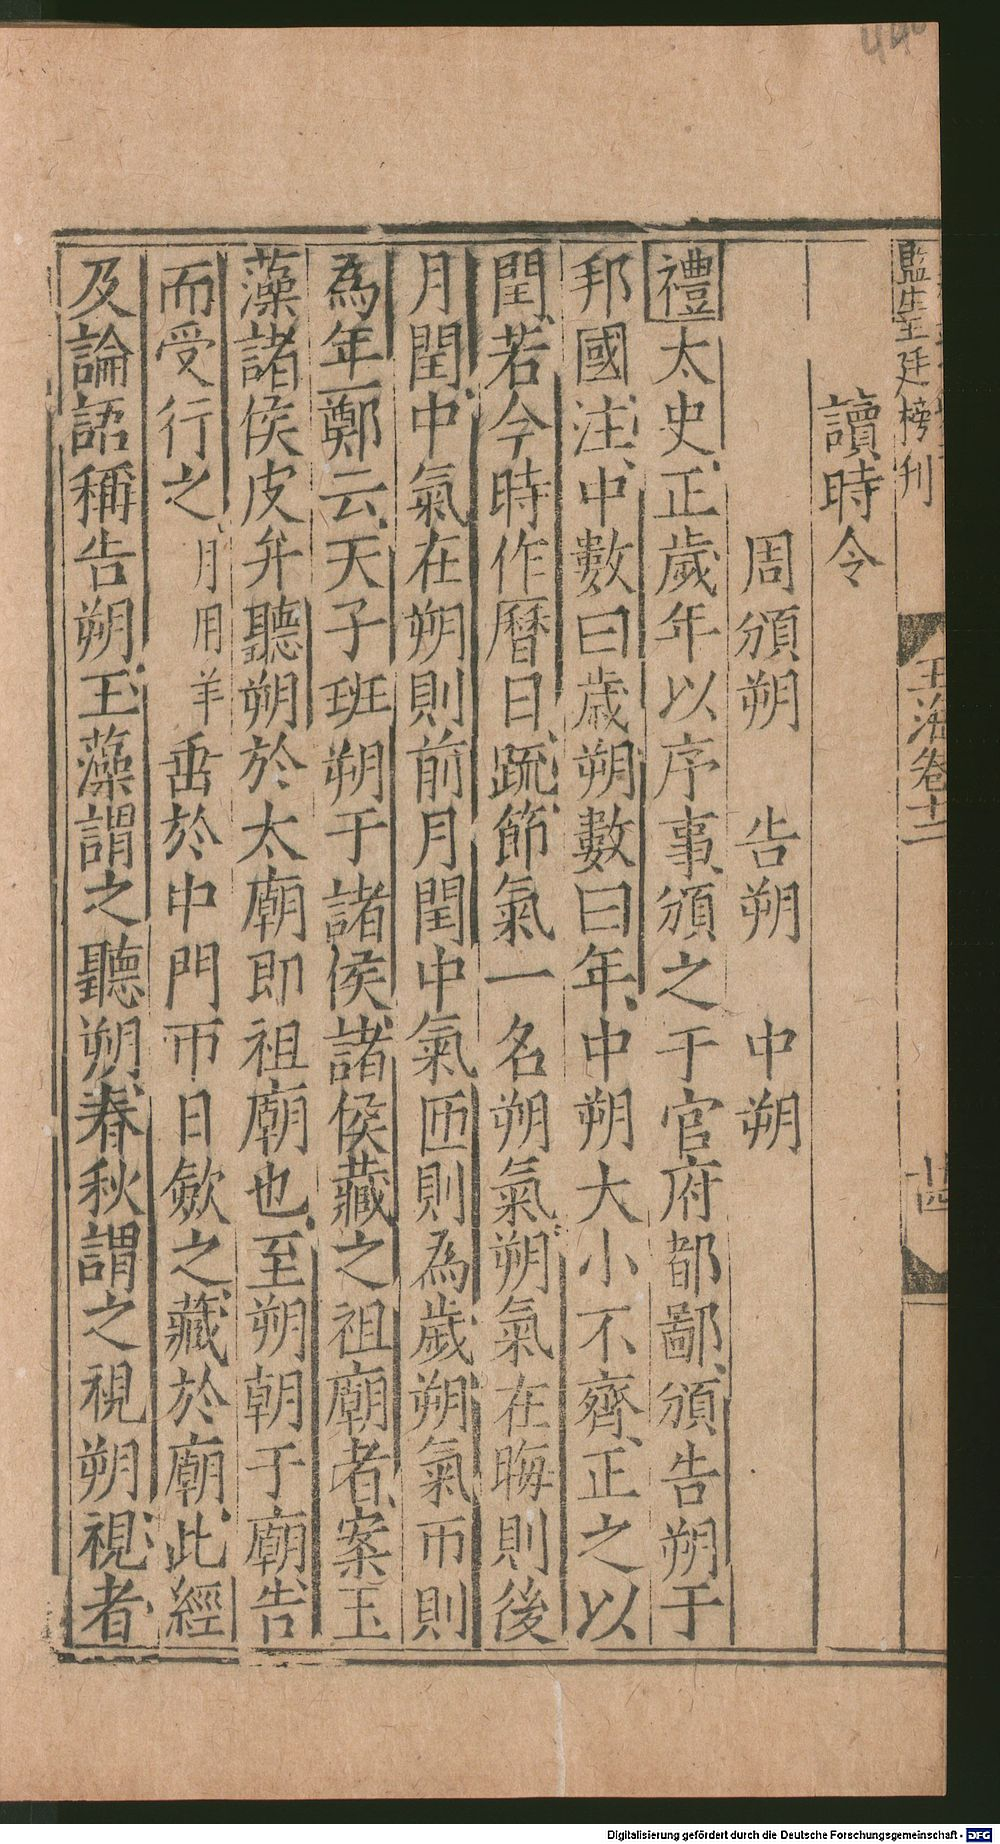 監生王廷榜刊
玉海卷十二
十四
讀時令
周頒朔　告朔　中朔
禮太史正歲年以序事頒之于官府都鄙頒告朔于
邦國注中數曰歲朔數曰年中朔大小不齊正之以
閏若今時作曆日疏節氣一名朔氣朔氣在晦則後
月閏中氣在朔則前月閏中氣匝則為歲朔氣帀則
為年鄭云天子班朔于諸侯諸侯藏之祖廟者案玉
藻諸侯皮弁聽朔於太廟即祖廟也至朔朝于廟告
而受行之月用羊臿於中門帀日歛之藏於廟此經
及論語稱告朔玉藻謂之聽朔春秋謂之視朔視者
Digitalisierung gefördert durch die Deutsche Forschungsgemeinschaft - DFG